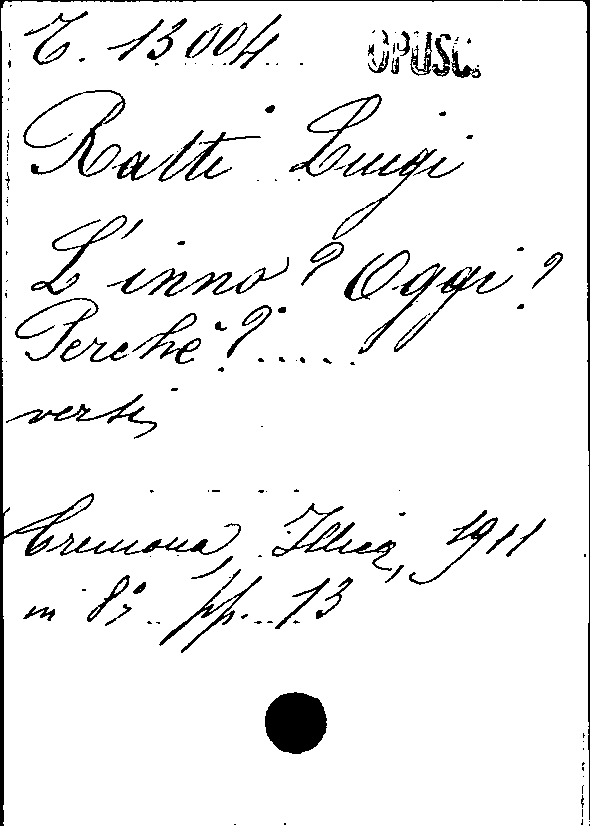 T. 13004 OPUSC.
Ratti Luigi
L'inno? Oggi?
Perchè?.....
versi,
Cremona, Illica, 1911
in 8° pp. 13